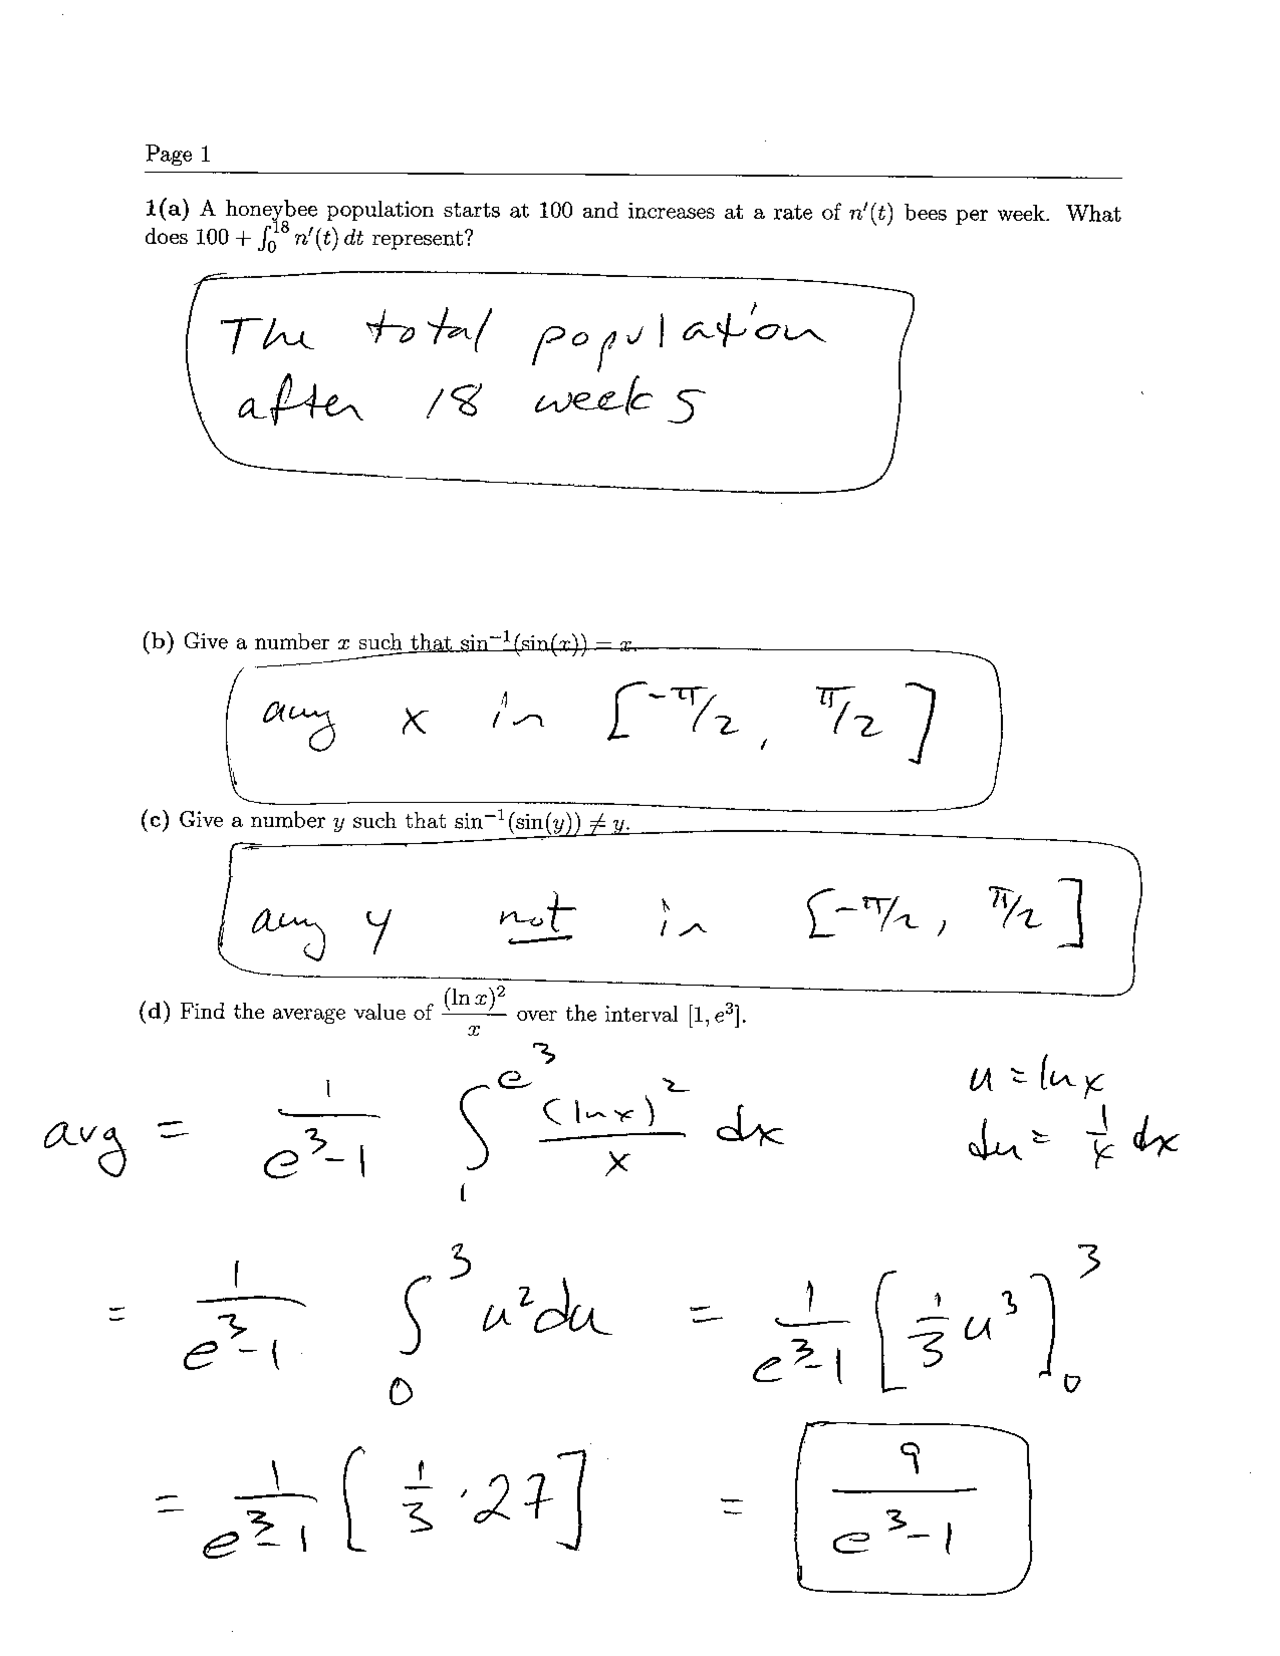 Page 1
1(a) A honeybee population starts at 100 and increases at a rate of n′(t) bees per week. What
does 100 + ∫₀¹⁸ n′(t) dt represent?
The total population
after 18 weeks
(b) Give a number x such that sin⁻¹(sin(x)) = x.
any x in [-π/2, π/2]
(c) Give a number y such that sin⁻¹(sin(y)) ≠ y.
any y not in [-π/2, π/2]
(d) Find the average value of (ln x)²/x over the interval [1, e³].
avg = 1/(e³-1) ∫₁^(e³) (ln x)²/x dx
u = ln x
du = 1/x dx
= 1/(e³-1) ∫₀³ u² du = 1/(e³-1) [1/3 u³]₀³
= 1/(e³-1) [1/3 · 27] = 9/(e³-1)